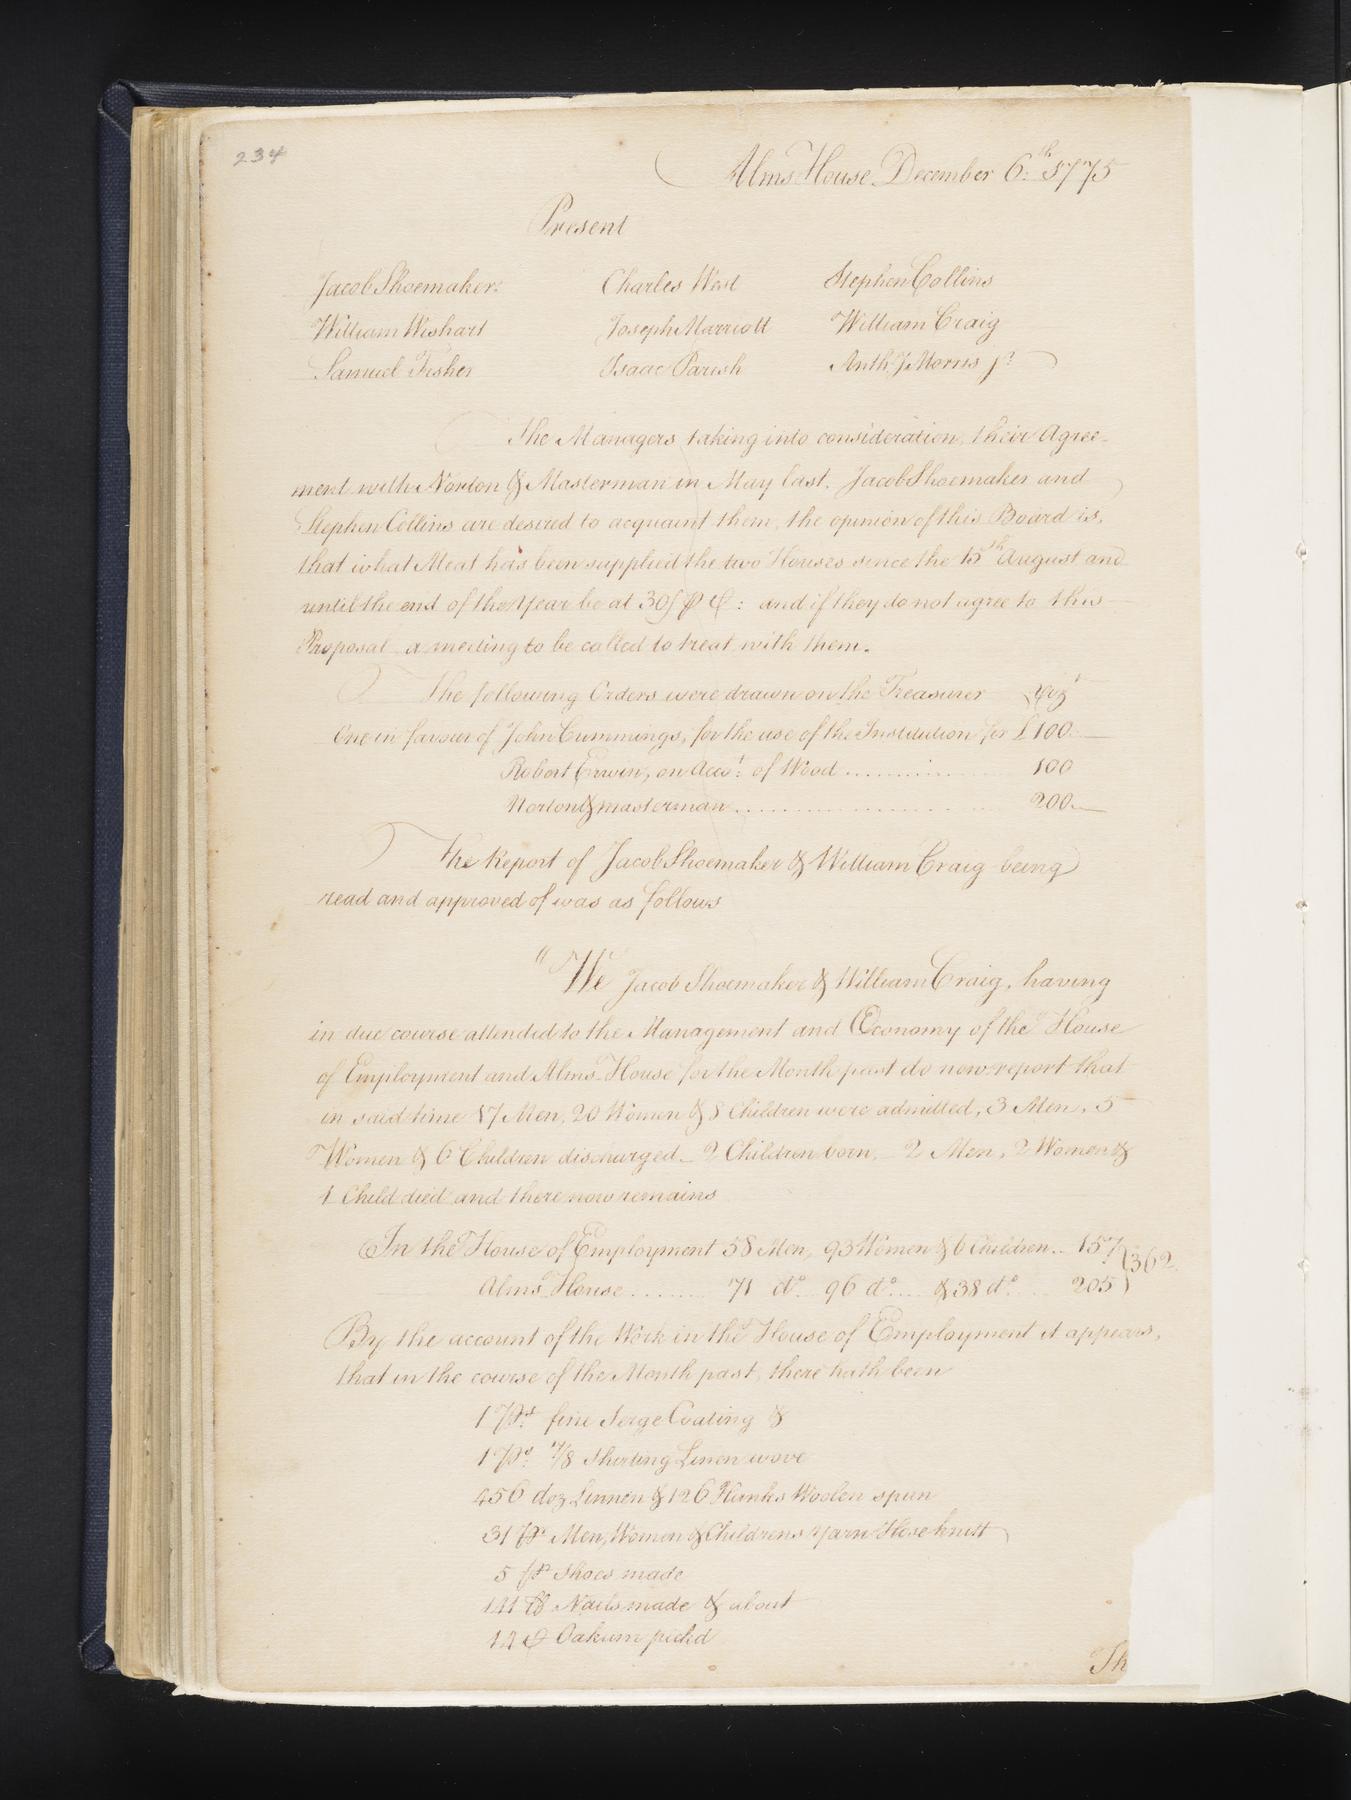 234
Alms House December 6.th 1775
Present
Jacob Shoemaker: Charles West Stephen Collins
William Wishart Joseph Marriott William Craig
Samuel Fisher Isaac Parish Anth:y Morris jr
The Managers taking into consideration, their Agree-
ment with Norton & Masterman in May last. Jacob Shoemaker and
Stephen Collins are desired to acquaint them, the opinion of this Board is,
that what Meat has been supplied the two Houses since the 15th August and
until the end of the Year be at 30/ ⅌ C: and if they do not agree to this
Proposal a meeting to be called to treat with them.
The following Orders were drawn on the Treasurer Vizt
One in favour of John Cummings, for the use of the Institution for £100.
Robert Erwin, on Acct: of Wood ............ 100
Norton & Masterman ............ 200
The Report of Jacob Shoemaker & William Craig being
read and approved of was as follows
"We Jacob Shoemaker & William Craig, having
in due course attended to the Management and Œconomy of the House
of Employment and Alms-House for the Month past do now report that
in said time 17 Men, 20 Women & 8 Children were admitted, 3 Men, 5
Women & 6 Children discharged - 2 Children born, - 2 Men, 2 Women &
1 Child died and there now remains
In the House of Employment 58 Men, 93 Women & 6 Children .. 157 } 362
Alms House ....... 71 do. 96 do. .... & 38 do. .... 205
By the account of the Work in the House of Employment it appears,
that in the course of the Month past, there hath been
1 Ps. fine Serge Coating &
1 Ps. 7/8 Shirting Linen wove
456 doz Linnen & 126 Hanks Woolen spun
31 pr Men, Women & Childrens Yarn Hose knitt
5 pr Shoes made
141 lb Nails made & about
14 C Oakum pickd
Th